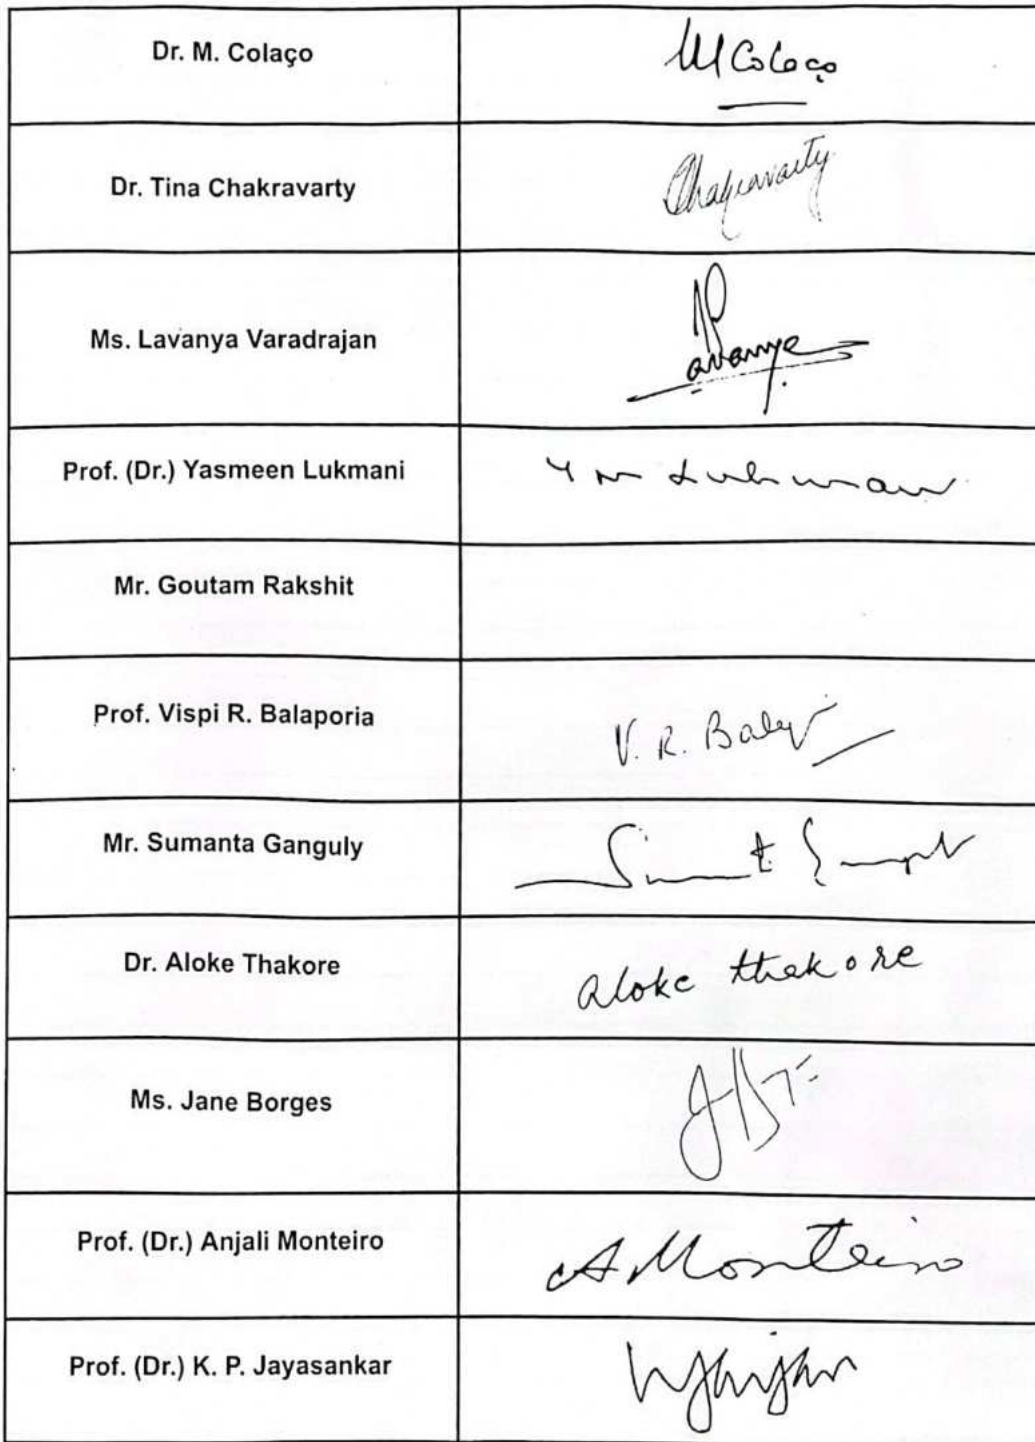 Dr. M. Colaço
M Colaço
Dr. Tina Chakravarty
Chakravarty
Ms. Lavanya Varadrajan
Lavanya
Prof. (Dr.) Yasmeen Lukmani
Y M Lukmani
Mr. Goutam Rakshit
Prof. Vispi R. Balaporia
V. R. Bal
Mr. Sumanta Ganguly
Dr. Aloke Thakore
aloke thakore
Ms. Jane Borges
Prof. (Dr.) Anjali Monteiro
A Monteiro
Prof. (Dr.) K. P. Jayasankar